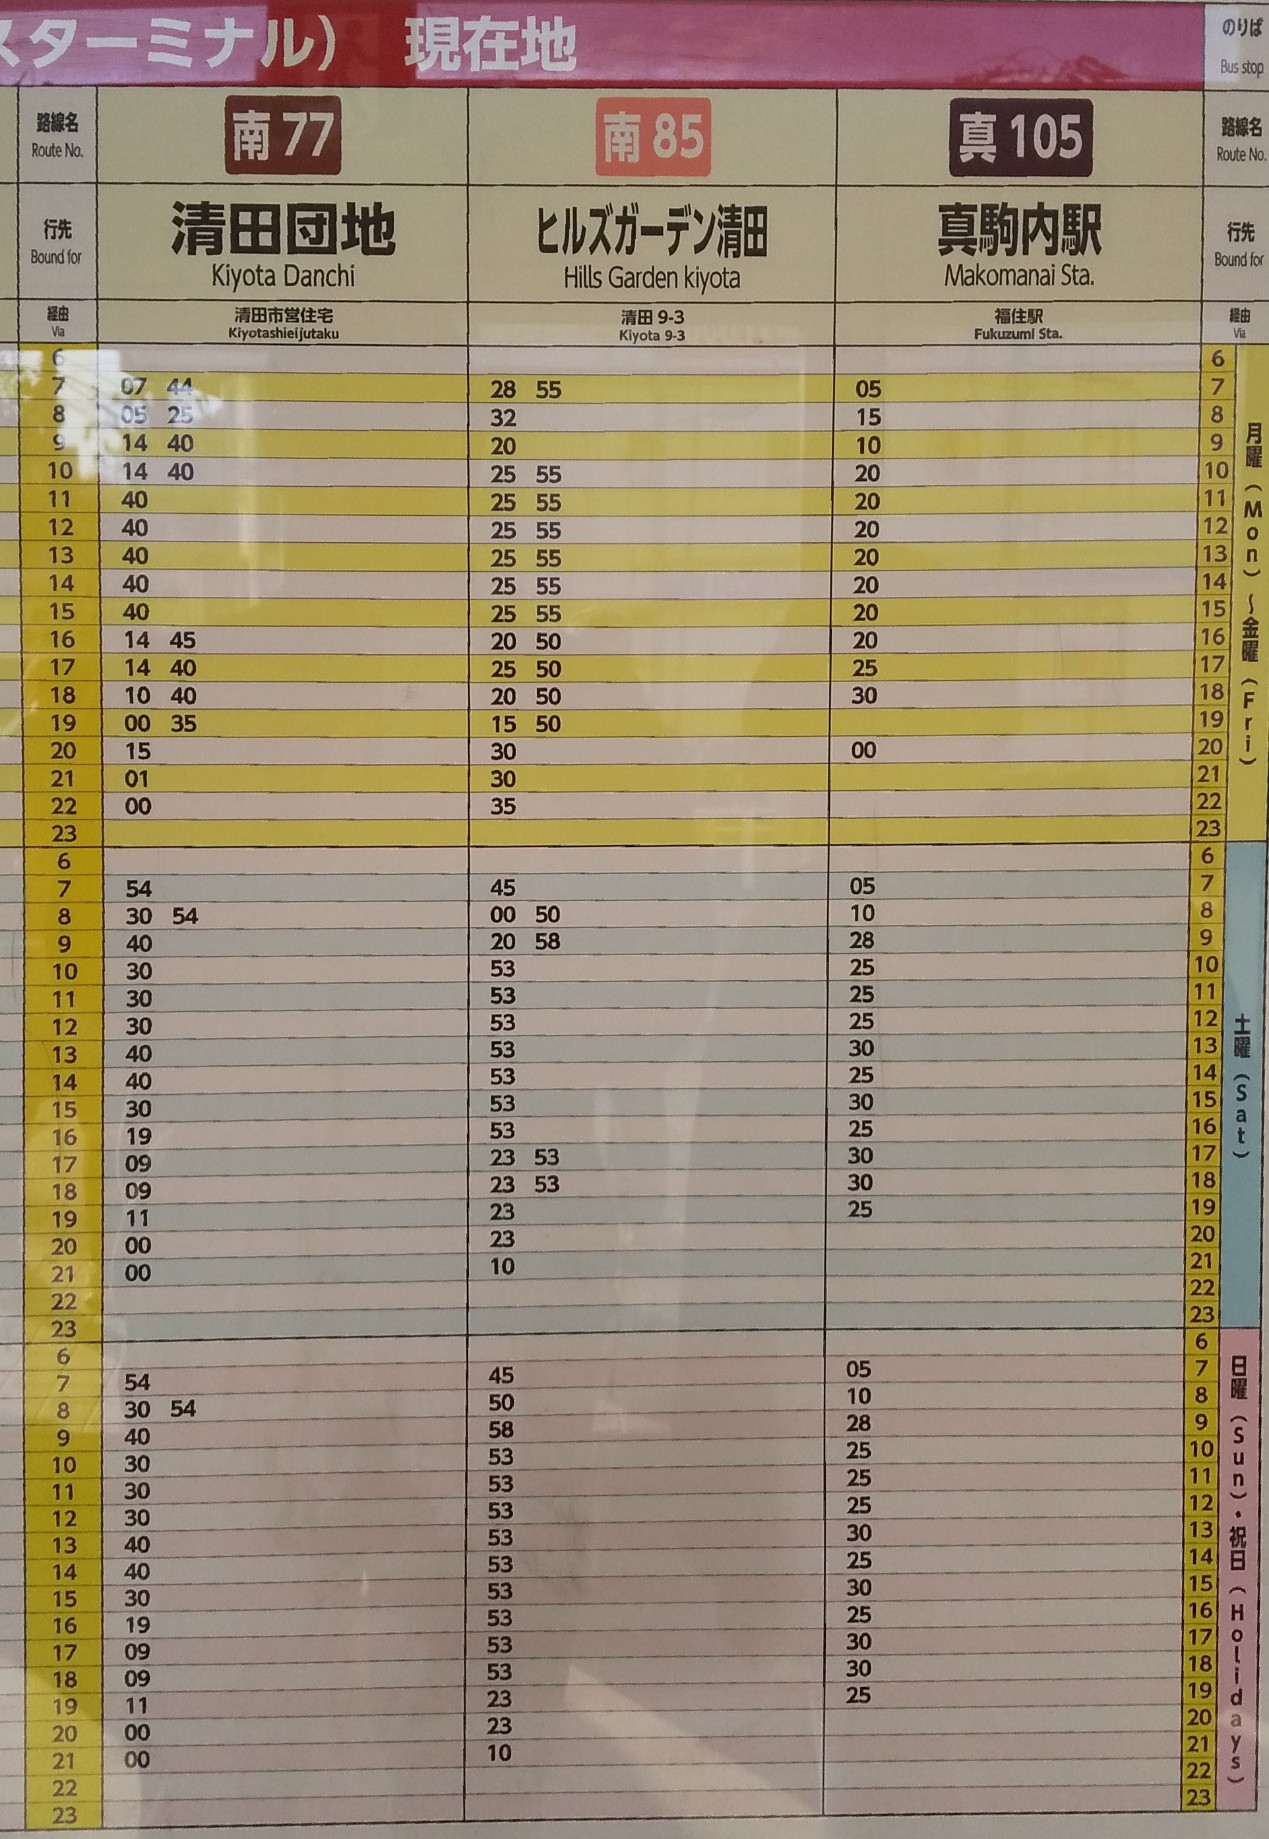 スターミナル) 現在地 のりば
Bus stop
路線名 南77 南85 真105 路線名
Route No. Route No.
行先 清田団地 ヒルズガーデン清田 真駒内駅 行先
Bound for Kiyota Danchi Hills Garden kiyota Makomanai Sta. Bound for
経由 清田市営住宅 清田 9-3 福住駅 経由
Via Kiyotashieijutaku Kiyota 9-3 Fukuzumi Sta. Via
月曜(Mon)~金曜(Fri)
6 6
7 07 44 28 55 05 7
8 05 25 32 15 8
9 14 40 20 10 9
10 14 40 25 55 20 10
11 40 25 55 20 11
12 40 25 55 20 12
13 40 25 55 20 13
14 40 25 55 20 14
15 40 25 55 20 15
16 14 45 20 50 20 16
17 14 40 25 50 25 17
18 10 40 20 50 30 18
19 00 35 15 50 19
20 15 30 00 20
21 01 30 21
22 00 35 22
23 23
土曜(Sat)
6 6
7 54 45 05 7
8 30 54 00 50 10 8
9 40 20 58 28 9
10 30 53 25 10
11 30 53 25 11
12 30 53 25 12
13 40 53 30 13
14 40 53 25 14
15 30 53 30 15
16 19 53 25 16
17 09 23 53 30 17
18 09 23 53 30 18
19 11 23 25 19
20 00 23 20
21 00 10 21
22 22
23 23
日曜(Sun)・祝日(Holidays)
6 6
7 54 45 05 7
8 30 54 50 10 8
9 40 58 28 9
10 30 53 25 10
11 30 53 25 11
12 30 53 25 12
13 40 53 30 13
14 40 53 25 14
15 30 53 30 15
16 19 53 25 16
17 09 53 30 17
18 09 53 30 18
19 11 23 25 19
20 00 23 20
21 00 10 21
22 22
23 23